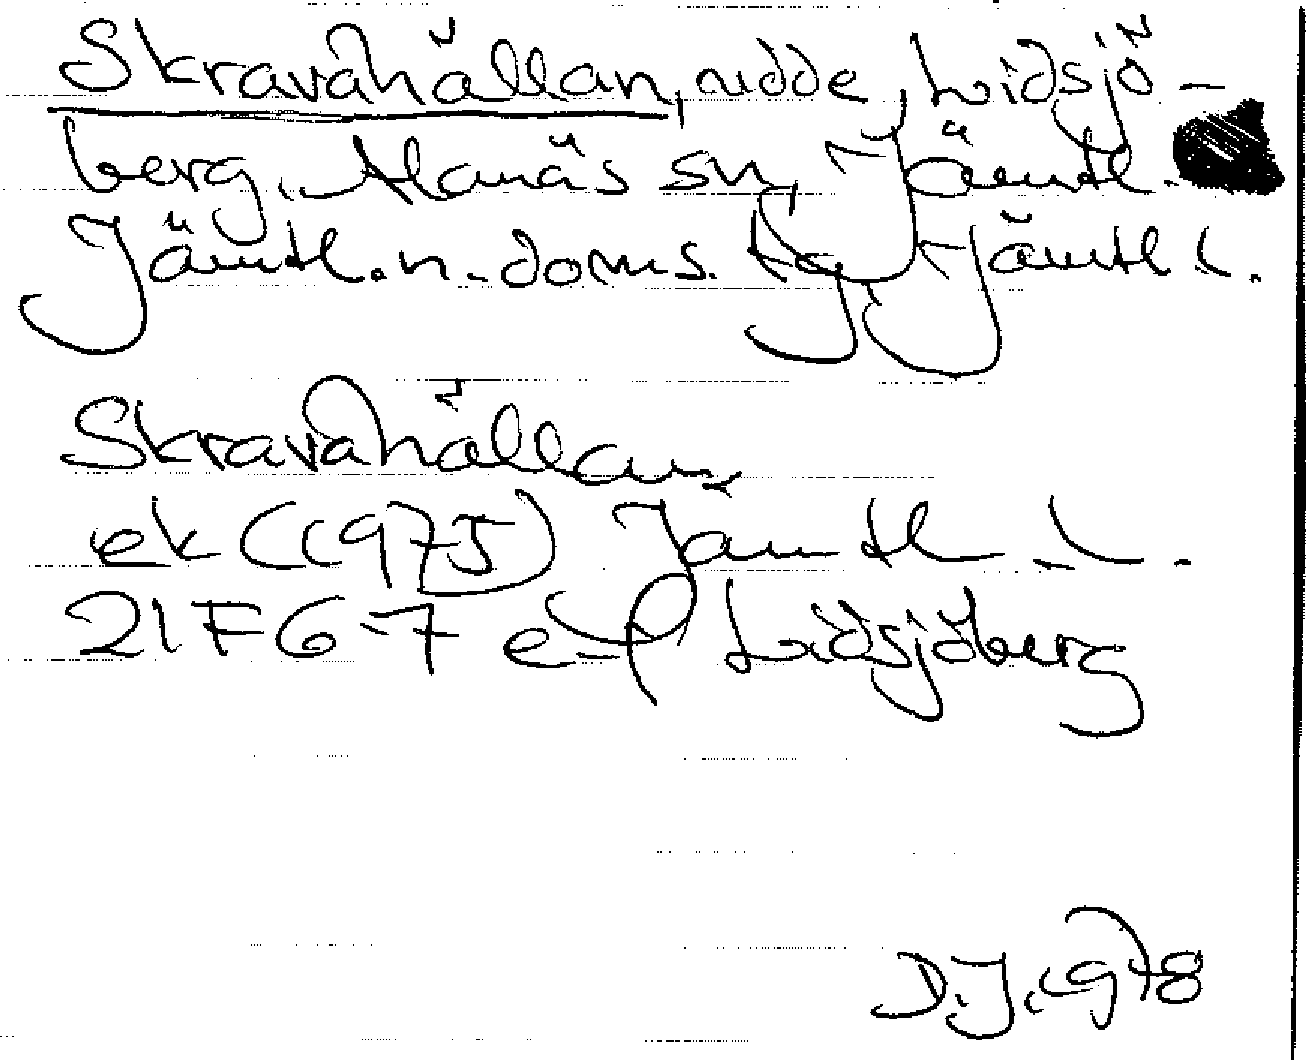 Skravahällan, udde, Lidsjö-
berg, Alanäs sn, Jämtl.
Jämtl. n. doms. tg, Jämtl l.
Skravahällan
ek (1975) Jämtl. l.
21F6-7 e-f Lidsjöberg
D.J. 1978